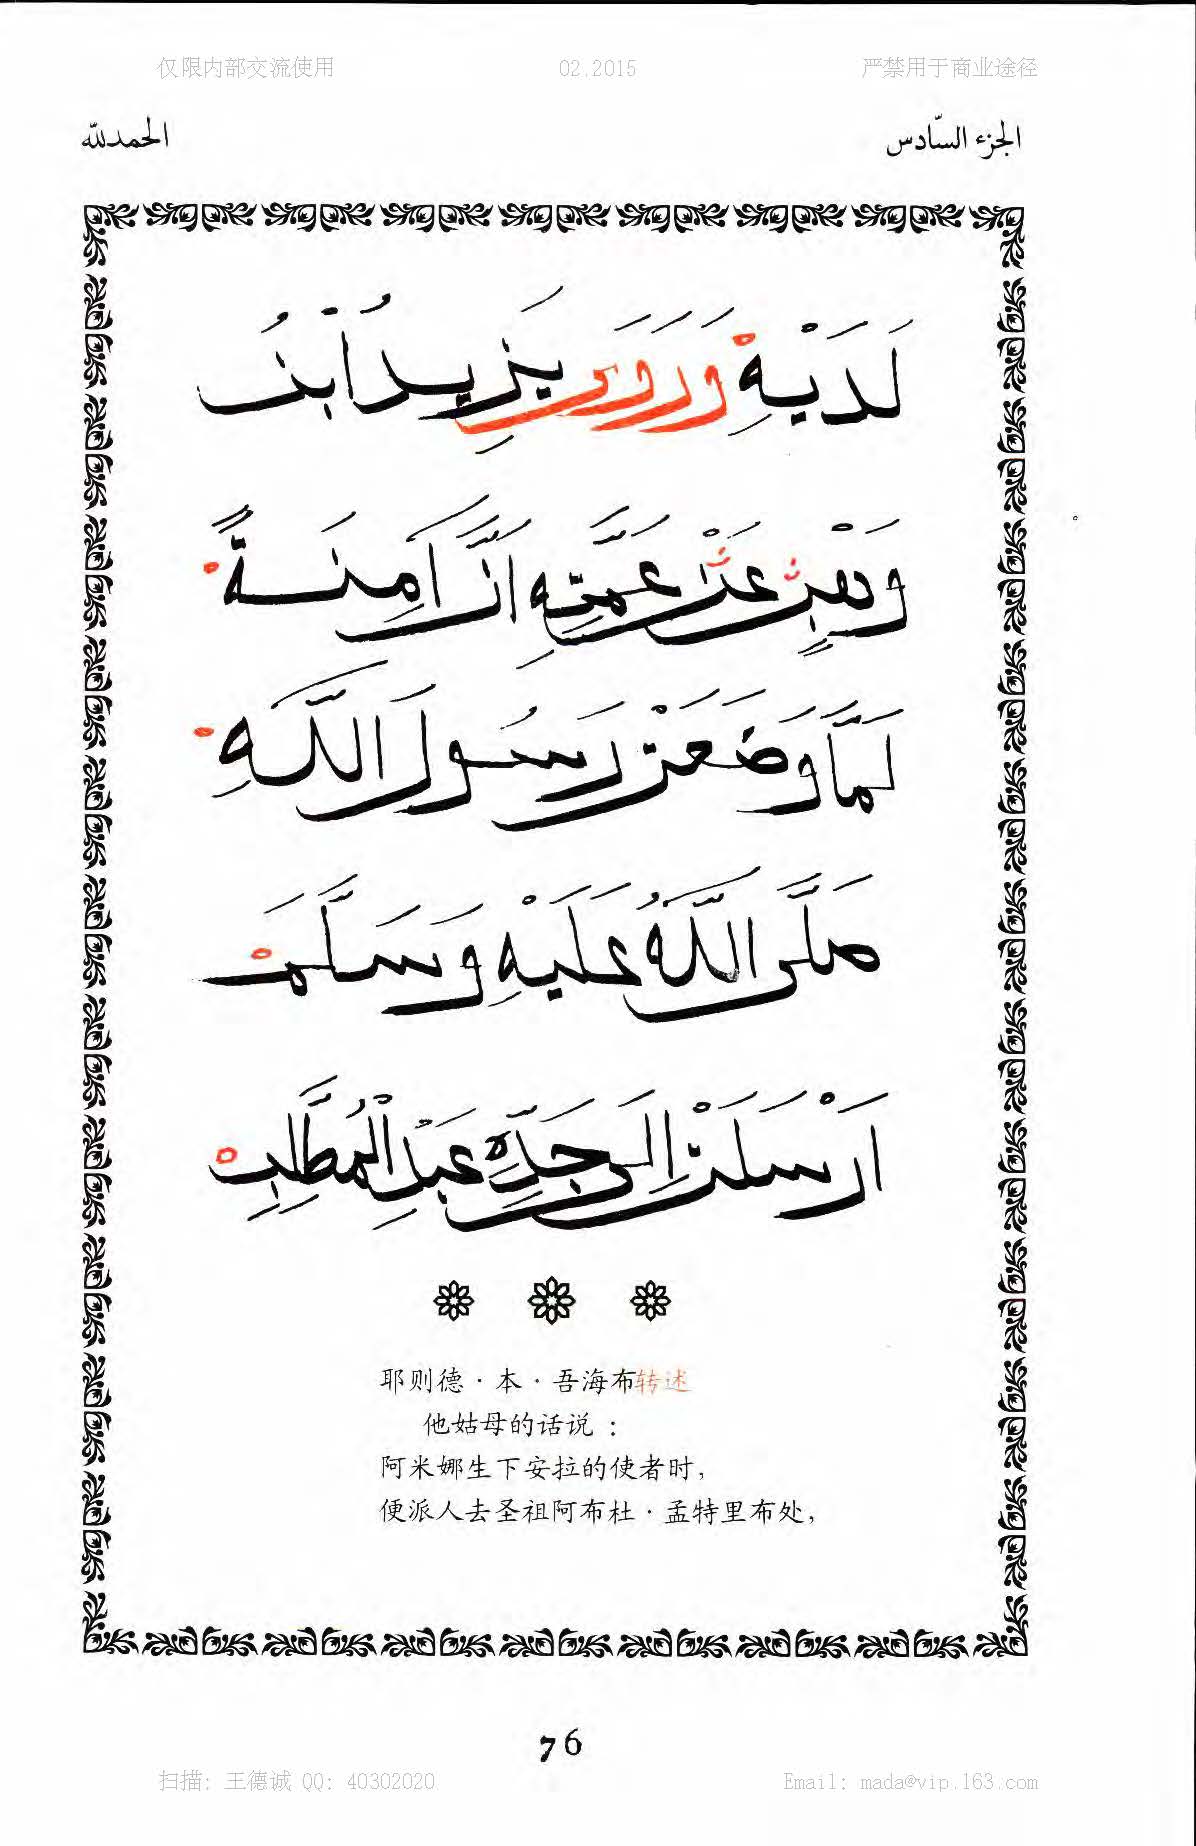 仅限内部交流使用 02.2015 严禁用于商业途径
الجزء السّادس الحمدلله
لَدَيْهِ وَرَوَى يَزِيدُ ابْنُ
وَهْبٍ عَنْ عَمَّتِهِ اَنَّ اٰمِنَةً
لَمَّا وَضَعَتْ رَسُولَ اللّٰهِ
صَلَّى اللّٰهُ عَلَيْهِ وَسَلَّمَ
اَرْسَلَتْ اِلَى جَدِّهِ عَبْدِ الْمُطَّلِبِ
耶则德·本·吾海布转述
他姑母的话说：
阿米娜生下安拉的使者时，
便派人去圣祖阿布杜·孟特里布处，
76
扫描：王德诚 QQ: 40302020 Email: mada@vip.163.com